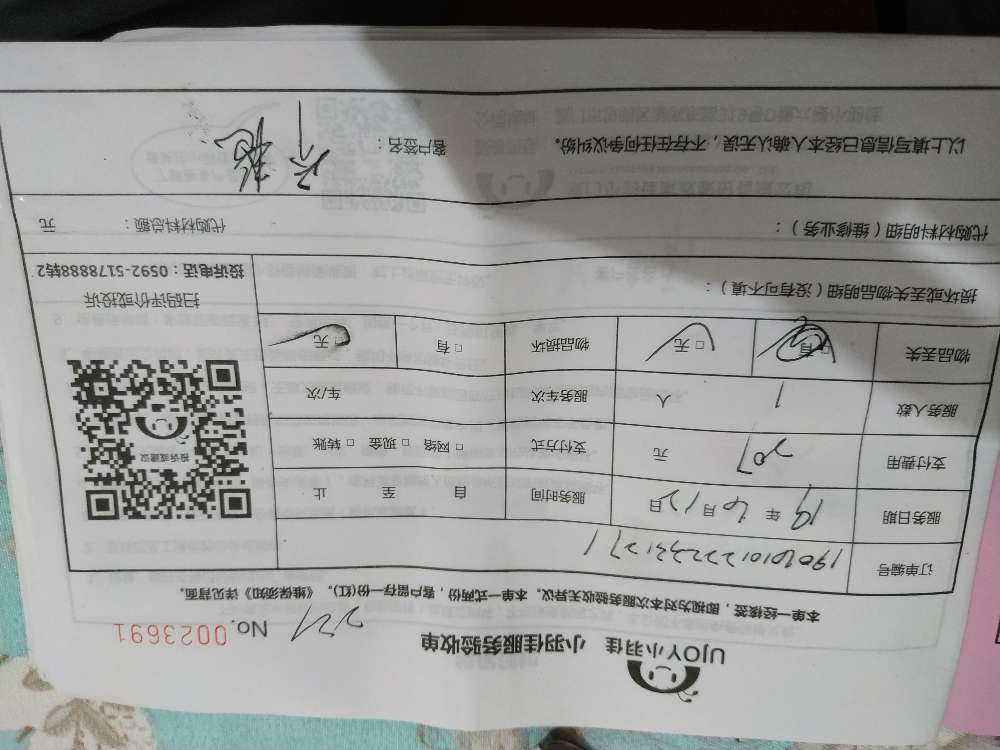 UJOY小羽佳 小羽佳服务验收单
No. 0023691
本单一经接签，即视为对本次服务验收无异议。本单一式两份，客户留存一份(红)。《维保须知》详见背面。
订单编号
服务日期 19 年 6 月 12 日 服务时间 自 至 止
支付费用 207 元 支付方式 □ 网络 □ 现金 □ 转账
服务人数 1 人 服务车次 车/次
物品丢失 □ 有 □ 无 物品损坏 □ 有 □ 无
投诉或建议
扫码评价或投诉
投诉电话：0592-5178888转2
损坏或丢失物品明细（没有可不填）：
代购材料明细（维修业务）： 代购材料总额： 元
以上填写信息已经本人确认无误，不存在任何争议纠纷。 客户签名：